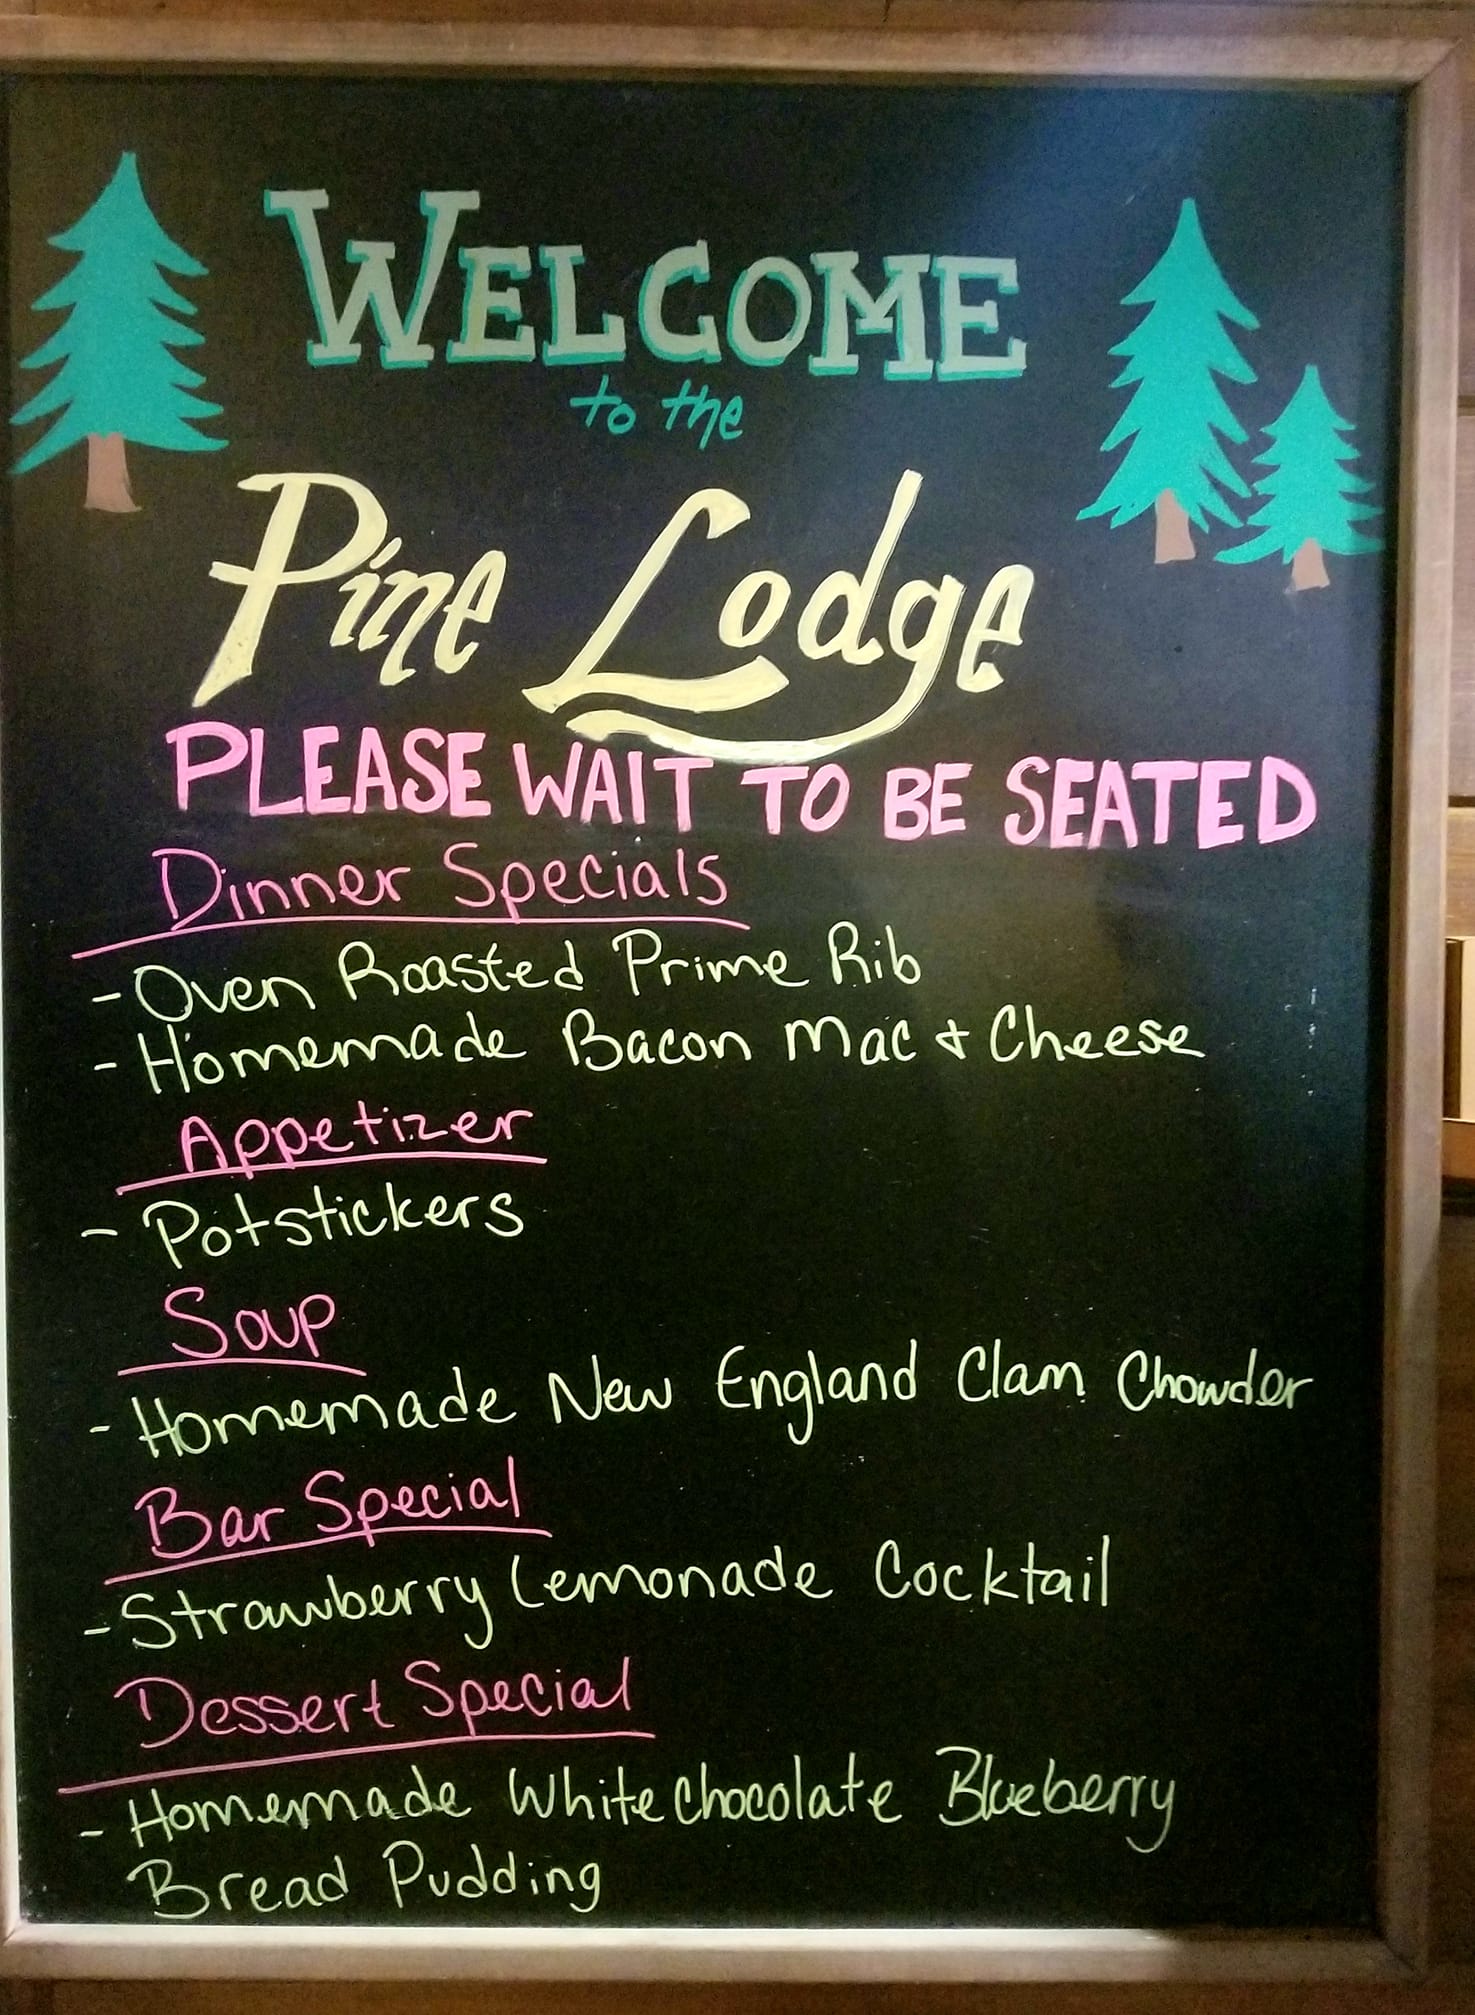 WELCOME
to the
Pine Lodge
PLEASE WAIT TO BE SEATED
Dinner Specials
- Oven Roasted Prime Rib
- Homemade Bacon Mac + Cheese
Appetizer
- Potstickers
Soup
- Homemade New England Clam Chowder
Bar Special
- Strawberry Lemonade Cocktail
Dessert Special
- Homemade White Chocolate Blueberry
Bread Pudding